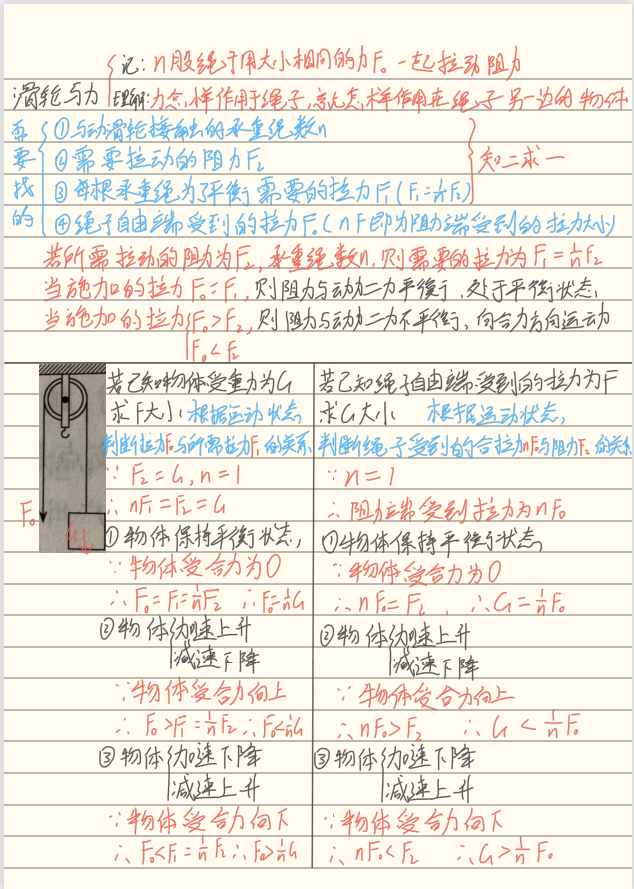 记: n股绳子用大小相同的力F₀一起拉动阻力
滑轮与力
理解: 力怎样作用于绳子,就怎样作用在绳子另一边的物体
需要找的
①与动滑轮接触的承重绳数n
②需要拉动的阻力F₂
③每根承重绳为了平衡需要的拉力F₁(F₁=1/nF₂)
④绳子自由端受到的拉力F₀(nF即为阻力端受到的拉力大小)
知二求一
若所需拉动的阻力为F₂,承重绳数n,则需要的拉力为F₁=1/nF₂
当施加的拉力F₀=F₁,则阻力与动力二力平衡,处于平衡状态
当施加的拉力F₀>F₂,则阻力与动力二力不平衡,向合力方向运动
F₀<F₂
F₀
G
若已知物体受重力为G
求F大小 根据运动状态
判断拉力F₀与所需拉力F₁的关系
∵F₂=G, n=1
∴nF₁=F₂=G
①物体保持平衡状态,
∵物体受合力为0
∴F₀=F₁=1/nF₂ ∴F₀=1/nG
②物体加速上升
减速下降
∵物体受合力向上
∴F₀>F₁=1/nF₂ ∴F₀<1/nG
③物体加速下降
减速上升
∵物体受合力向下
∴F₀<F₁=1/nF₂ ∴F₀>1/nG
若已知绳子自由端受到的拉力为F
求G大小 根据运动状态,
判断绳子受到的合拉力nF₀与阻力F₂的关系
∵n=1
∴阻力端受到拉力为nF₀
①物体保持平衡状态
∵物体受合力为0
∴nF₀=F₂, ∴G=1/nF₀
②物体加速上升
减速下降
∵物体受合力向上
∴nF₀>F₂ ∴G<1/nF₀
③物体加速下降
减速上升
∵物体受合力向下
∴nF₀<F₂ ∴G>1/nF₀